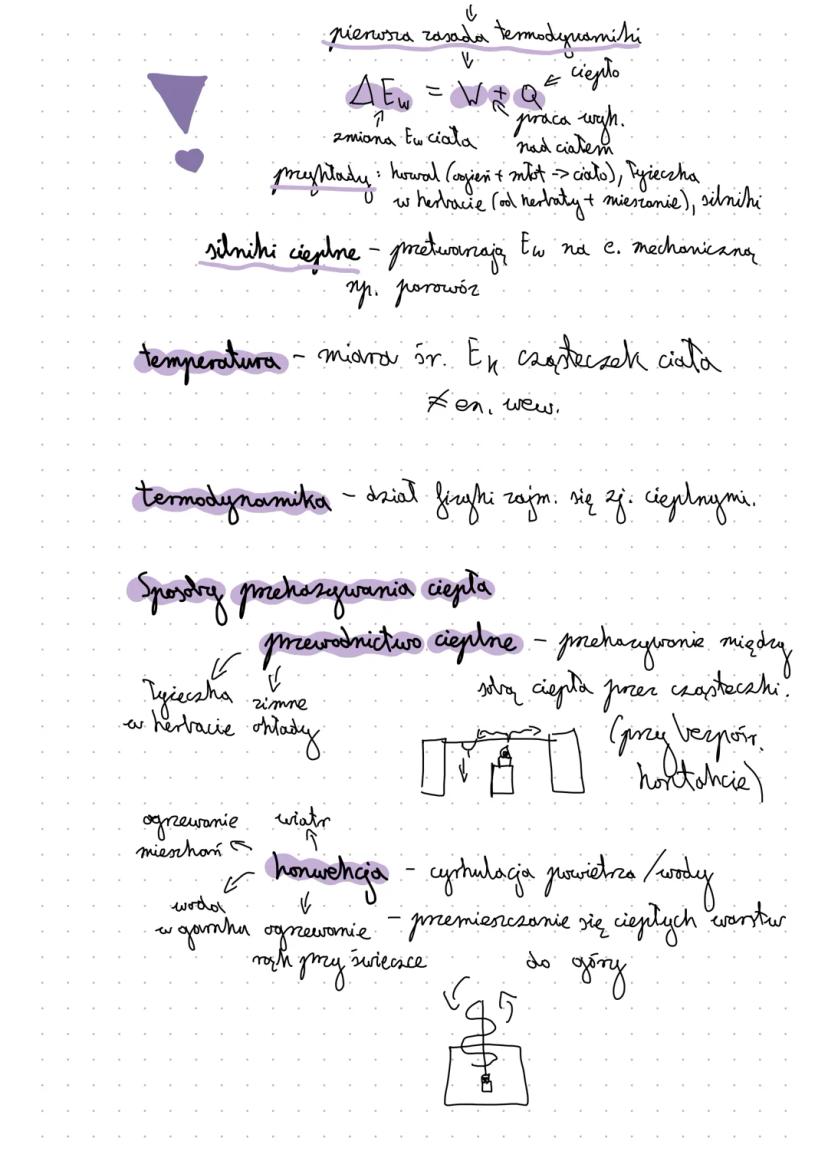 pierwsza zasada termodynamiki
ΔEw = W + Q
ciepło
zmiana Ew ciała
praca wyk.
nad ciałem
przykłady: kowal (ogień + młot -> ciało), łyżeczka
w herbacie (od herbaty + mieszanie), silniki
silniki cieplne - przetwarzają Ew na e. mechaniczną
np. parowóz
temperatura - miara śr. Ek cząsteczek ciała
≠ en. wew.
termodynamika - dział fizyki zajm. się zj. cieplnymi.
Sposoby przekazywania ciepła
przewodnictwo cieplne - przekazywanie między
sobą ciepła przez cząsteczki.
(przy bezpośr.
kontakcie)
łyżeczka
w herbacie
zimne
okłady
ogrzewanie
mieszkań
wiatr
konwekcja - cyrkulacja powietrza/wody
- przemieszczanie się ciepłych warstw
do góry
woda
w garnku
ogrzewanie
rąk przy świeczce